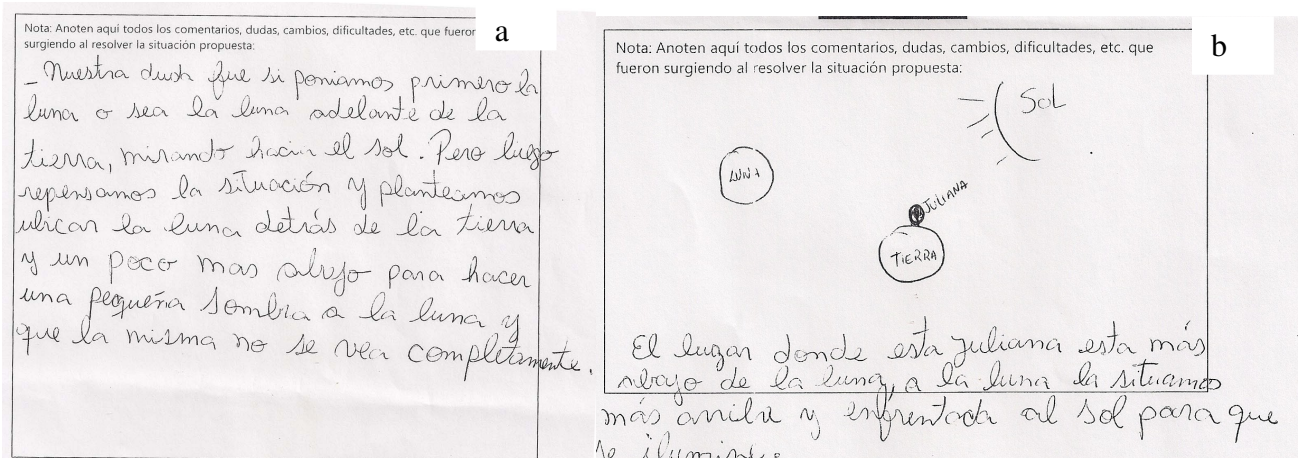 a
Nota: Anoten aquí todos los comentarios, dudas, cambios, dificultades, etc. que fueron
surgiendo al resolver la situación propuesta:
_ Nuestra duda fue si poniamos primero la
luna o sea la luna adelante de la
tierra, mirando hacia el sol. Pero luego
repensamos la situación y planteamos
ubicar la luna detrás de la tierra
y un poco mas abajo para hacer
una pequeña sombra a la luna y
que la misma no se vea completamente.
b
Nota: Anoten aquí todos los comentarios, dudas, cambios, dificultades, etc. que
fueron surgiendo al resolver la situación propuesta:
SOL
LUNA
JULIANA
TIERRA
El lugar donde esta Juliana esta más
abajo de la luna, a la luna la situamos
más arriba y enfrentada al sol para que
se